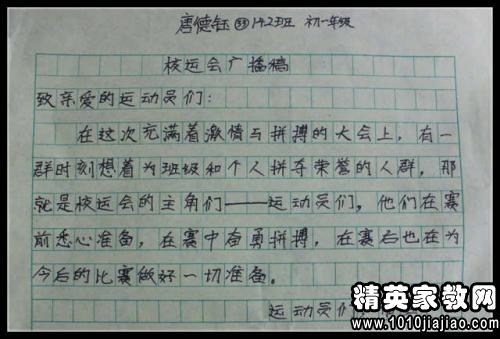 唐德钰 33 142班 初一年级
校运会广播稿
致亲爱的运动员们:
在这次充满着激情与拼搏的大会上,有一
群时刻想着为班级和个人拼夺荣誉的人群,那
就是校运会的主角们——运动员们,他们在赛
前悉心准备,在赛中奋勇拼搏,在赛后也在为
今后的比赛做好一切准备。
运动员们
精英家教网
www.1010jiajiao.com